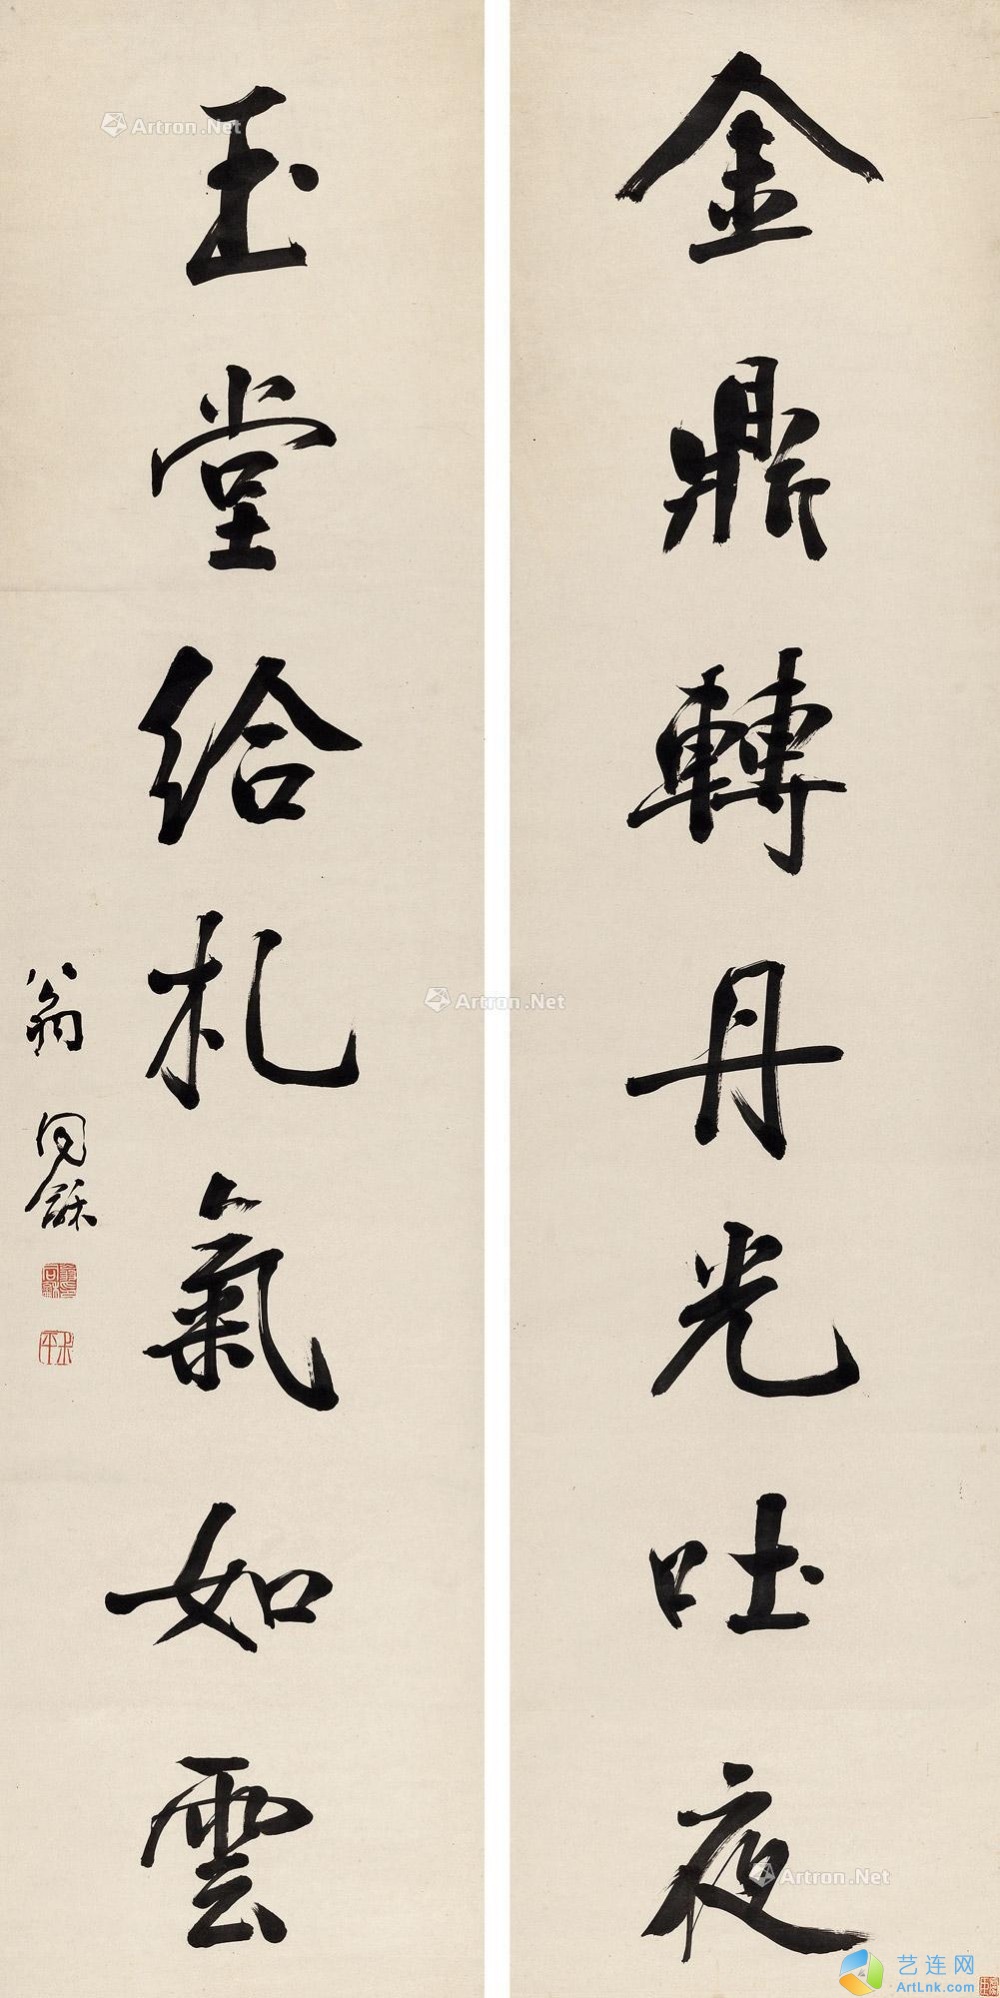 金鼎轉丹光吐夜
玉堂給札氣如雲
翁同龢
Artron.Net
Artron.Net
Artron.Net
艺连网
ArtLnk.com